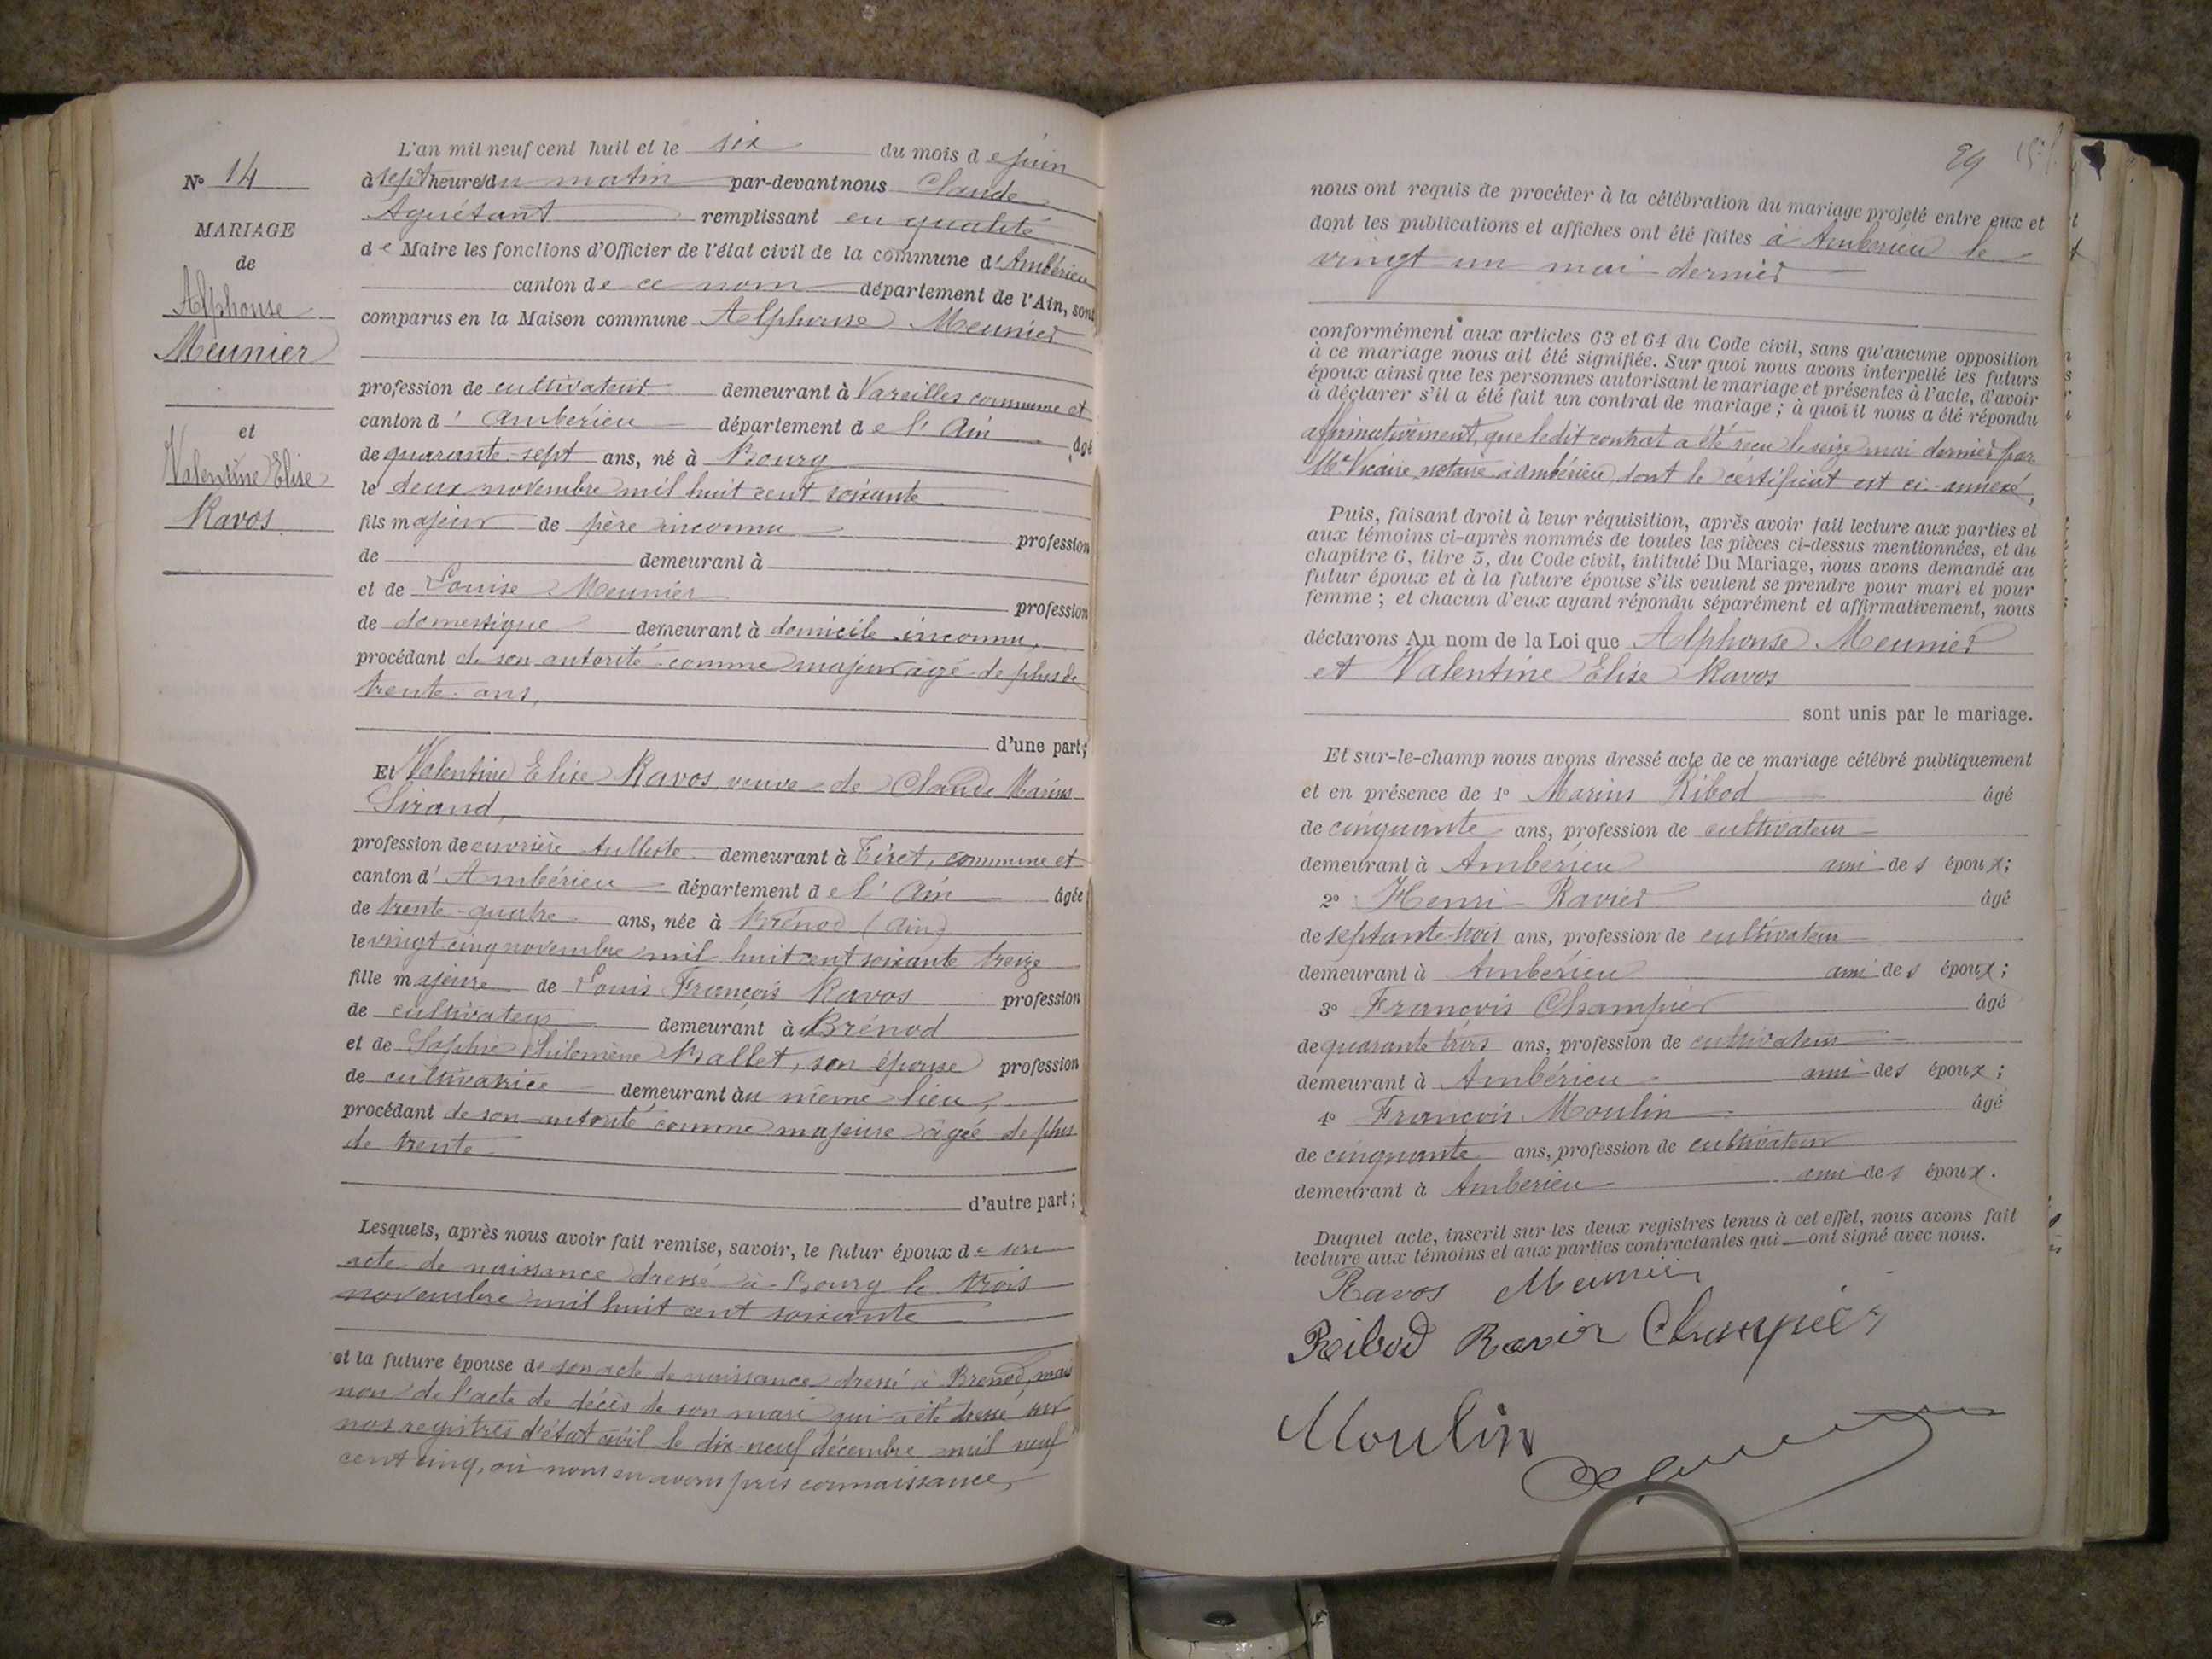 N° 14
MARIAGE
de
Alphonse
Meunier
et
Valentine Elise
Ravos
L'an mil neuf cent huit et le six du mois de juin
à sept heures du matin par-devant nous Claude
Aguétant remplissant en qualité
de Maire les fonctions d'Officier de l'état civil de la commune d'Ambérieu
canton de ce nom département de l'Ain, sont
comparus en la Maison commune Alphonse Meunier
profession de cultivateur demeurant à Vareilles commune et
canton d'Ambérieu département de l'Ain âgé
de quarante-sept ans, né à Bourg
le deux novembre mil huit cent soixante
fils majeur de père inconnu profession
de demeurant à
et de Louise Meunier profession
de domestique demeurant à domicile inconnu,
procédant de son autorité comme majeur âgé de plus de
trente ans,
d'une part;
Et Valentine Elise Ravos veuve de Claude Marius
Sirand,
profession de ouvrière tulliste demeurant à Tiret, commune et
canton d'Ambérieu département de l'Ain âgée
de trente-quatre ans, née à Brénod (Ain)
le vingt cinq novembre mil huit cent soixante treize
fille majeure de Louis François Ravos profession
de cultivateur demeurant à Brénod
et de Sophie Philomène Ballet, son épouse profession
de cultivatrice demeurant au même lieu,
procédant de son autorité comme majeure âgée de plus
de trente
d'autre part;
Lesquels, après nous avoir fait remise, savoir, le futur époux de son
acte de naissance dressé à Bourg le trois
novembre mil huit cent soixante
et la future épouse de son acte de naissance dressé à Brénod, mais
non de l'acte de décès de son mari qui a été dressé sur
nos registres d'état civil le dix-neuf décembre mil neuf
cent cinq, où nous en avons pris connaissance,
29
nous ont requis de procéder à la célébration du mariage projeté entre eux et
dont les publications et affiches ont été faites à Ambérieu le
vingt un mai dernier
conformément aux articles 63 et 64 du Code civil, sans qu'aucune opposition
à ce mariage nous ait été signifiée. Sur quoi nous avons interpellé les futurs
époux ainsi que les personnes autorisant le mariage et présentes à l'acte, d'avoir
à déclarer s'il a été fait un contrat de mariage; à quoi il nous a été répondu
affirmativement, que ledit contrat a été reçu le seize mai dernier par
Me Vicaire notaire à Ambérieu dont le certificat est ci-annexé,
Puis, faisant droit à leur réquisition, après avoir fait lecture aux parties et
aux témoins ci-après nommés de toutes les pièces ci-dessus mentionnées, et du
chapitre 6, titre 5, du Code civil, intitulé Du Mariage, nous avons demandé au
futur époux et à la future épouse s'ils veulent se prendre pour mari et pour
femme; et chacun d'eux ayant répondu séparément et affirmativement, nous
déclarons Au nom de la Loi que Alphonse Meunier
et Valentine Elise Ravos
sont unis par le mariage.
Et sur-le-champ nous avons dressé acte de ce mariage célébré publiquement
et en présence de 1° Marius Ribod âgé
de cinquante ans, profession de cultivateur
demeurant à Ambérieu ami des époux;
2° Henri Ravier âgé
de septante-trois ans, profession de cultivateur
demeurant à Ambérieu ami des époux;
3° François Champier âgé
de quarante trois ans, profession de cultivateur
demeurant à Ambérieu ami des époux;
4° François Moulin âgé
de cinquante ans, profession de cultivateur
demeurant à Ambérieu ami des époux.
Duquel acte, inscrit sur les deux registres tenus à cet effet, nous avons fait
lecture aux témoins et aux parties contractantes qui ont signé avec nous.
Ravos Meunier
Ribod Ravier Champier
Moulin